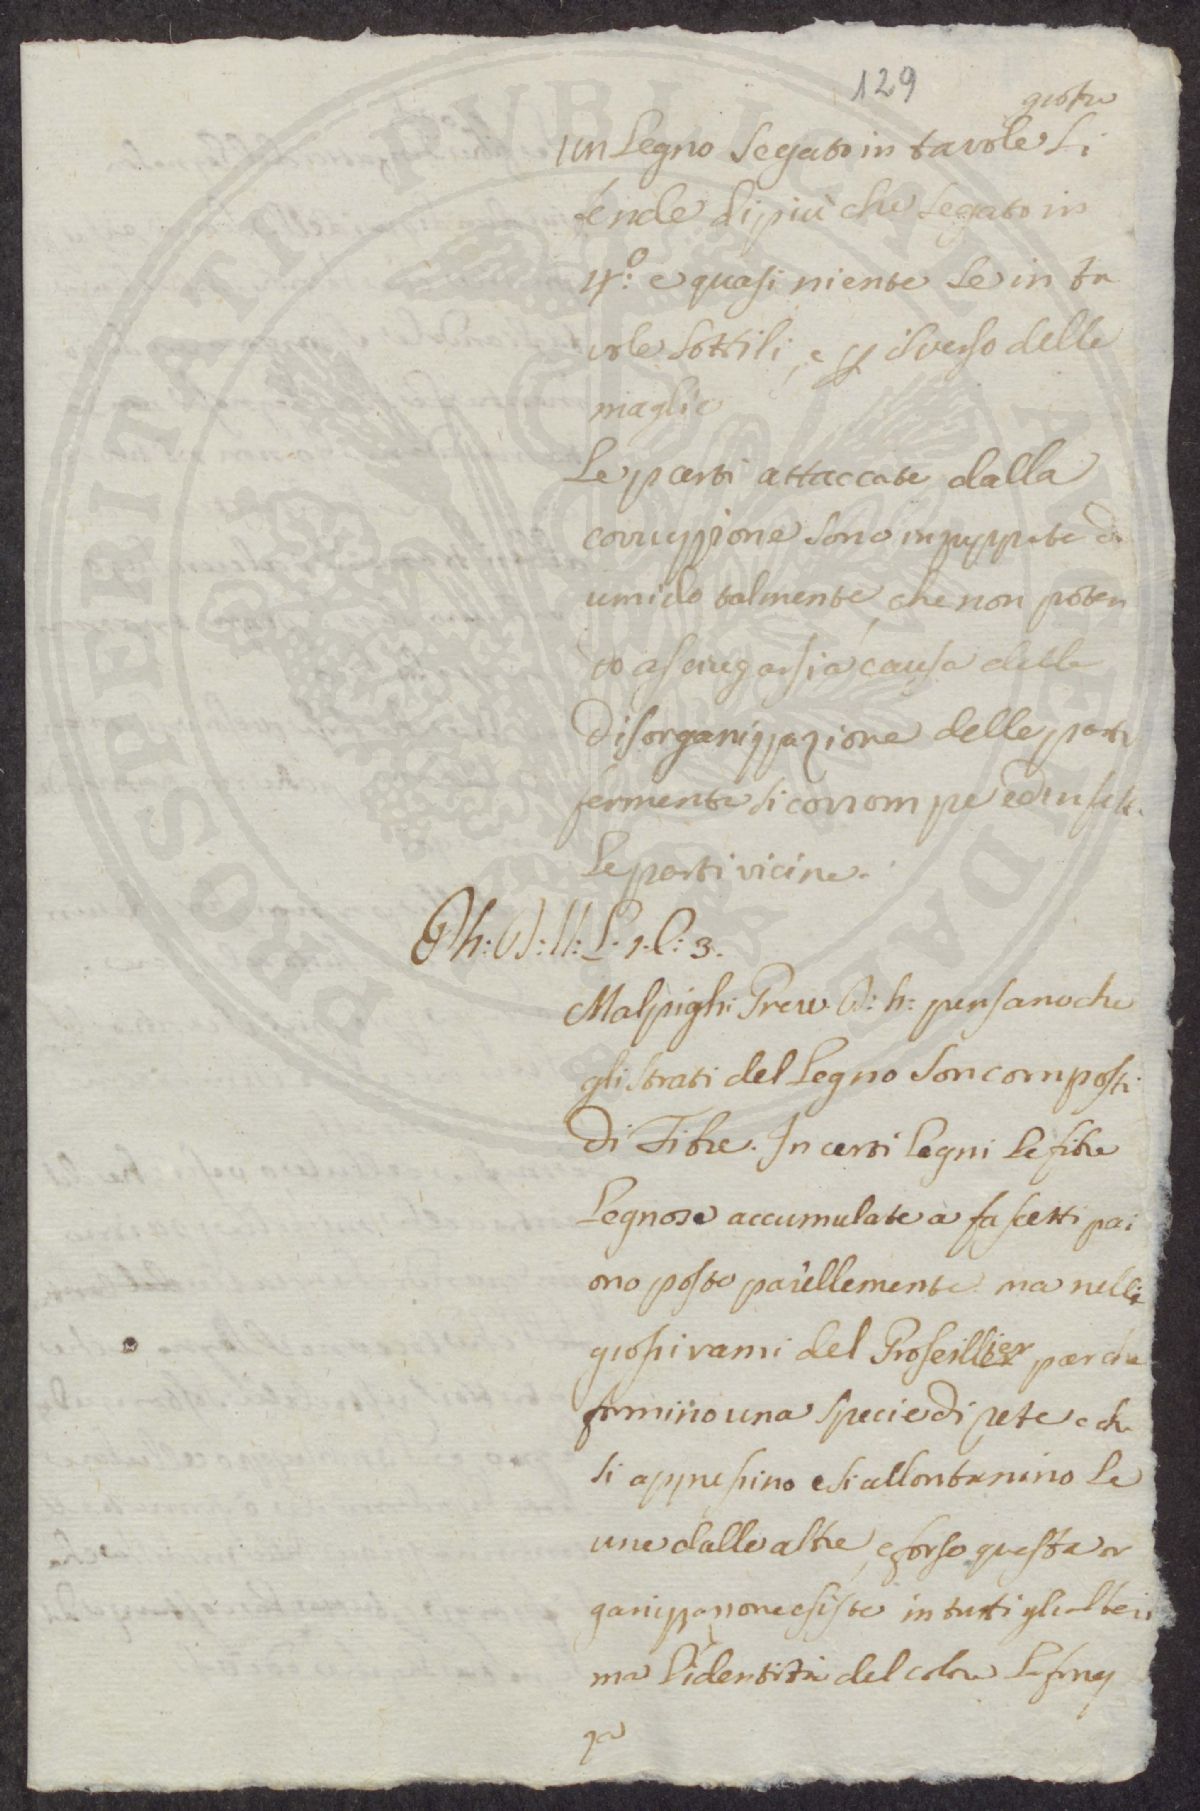 129
grosse
un Legno Segato in tavole Si
fende di più che segato in
4.º e quasi niente Se in ta
vole Sottili, e p il verso delle
maglie
Le parti attaccate dalla
corruzzione sono inzuppate di
umido talmente, che non poten
do asciugarsi à causa della
disorganizzazione delle parti
fermenta si corrompe ed infetta
le parti vicine.
Ph: D: ll: L. 1. C: 3.
Malpighi Grew D: h: pensano che
gli strati del Legno Son composti
di Fibre. In certi Legni le fibre
Legnose accumulate a fascetti pai
ono poste parellemente ma nelli
grossi rami del Groseillier par che
formino una specie di rete e che
si appressino e si allontanino le
une dalle altre, e forse questa or
ganizzazione esiste in tutti gli alberi
ma l'identità del colore le
za
PROSPERITATI PVBLICAE AVGENDAE